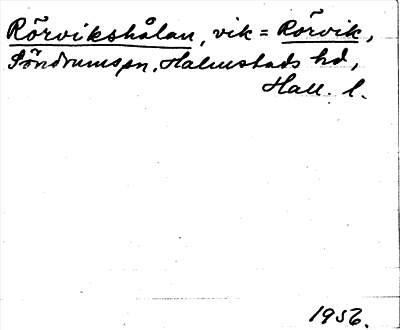 Rörvikshålan, vik = Rörvik,
Söndrums sn. Halmstads hd,
Hall. l.
1956.